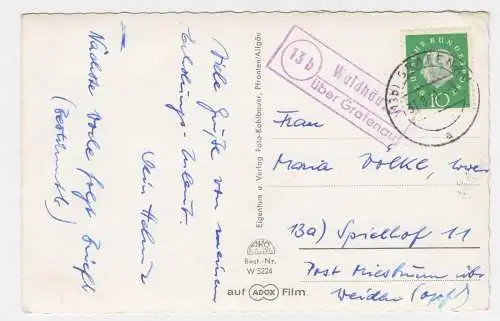 Viele Grüße von meinem
Erholungs-Urlaub.
Dein Helmut
Nächste Woche folgt Brief
(bestimmt)
Eigentum u. Verlag Foto-Kohlbauer, Pfronten/Allgäu
Best.-Nr.
W 5224
auf ADOX Film
13b
Waldhäu
über Grafenau
DEUTSCHE BUNDESPOST
10
(13b) GRAFENAU
a
Frau
Maria Völkl,
13a) Spielhof 11
Post über
Weiden (Opf)